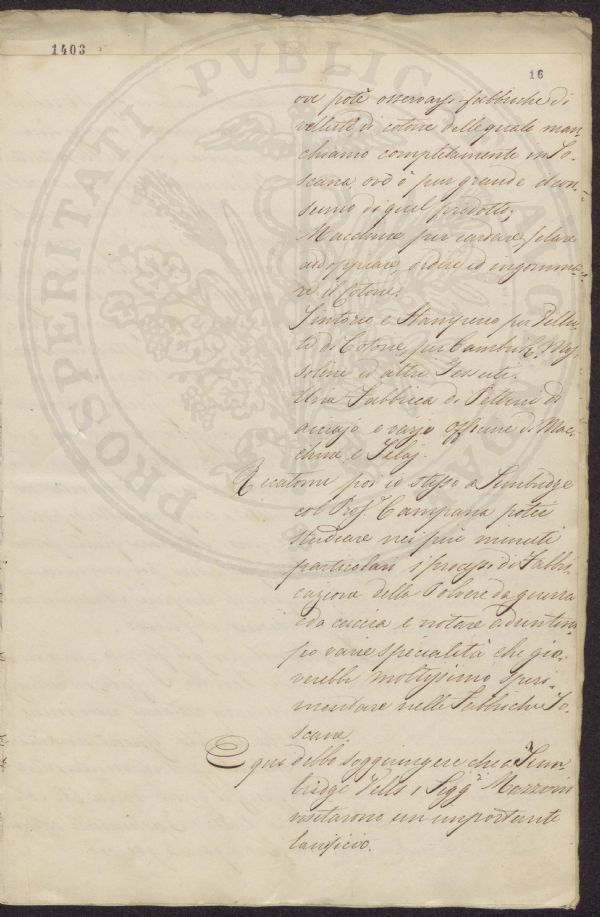 1403
16
PROSPERITATI PUBLICAE
ove potè osservarsi fabbriche di
velluto di cotone delle quali man-
chiamo completamente in To-
scana ov'è pur grande il con-
sumo di quel prodotto;
Macchine per cardare, filare
addoppiare, ordire ed ingomma-
re il Cotone;
Tintorie e Stamperie per Vellu-
ti di Cotone, per Cambrik, Mus-
soline ed altri Tessuti.
Una Fabbrica di Pettini di
acciajo e varie Officine di Mac-
chine e Telaj.
Recatomi poi io stesso a Tunbridge
col Prof.r Campana potei
studiare nei più minuti
particolari i processi di Fabbri-
cazione della Polvere da guerra
e da caccia e notare ad un tem-
po varie specialità che gio-
verebbe moltissimo speri-
mentare nelle Fabbriche To-
scane.
E qui debbo soggiungere che a Tun-
bridge Vells i Sigg.ri Mazzoni
visitarono un importante
lanificio.